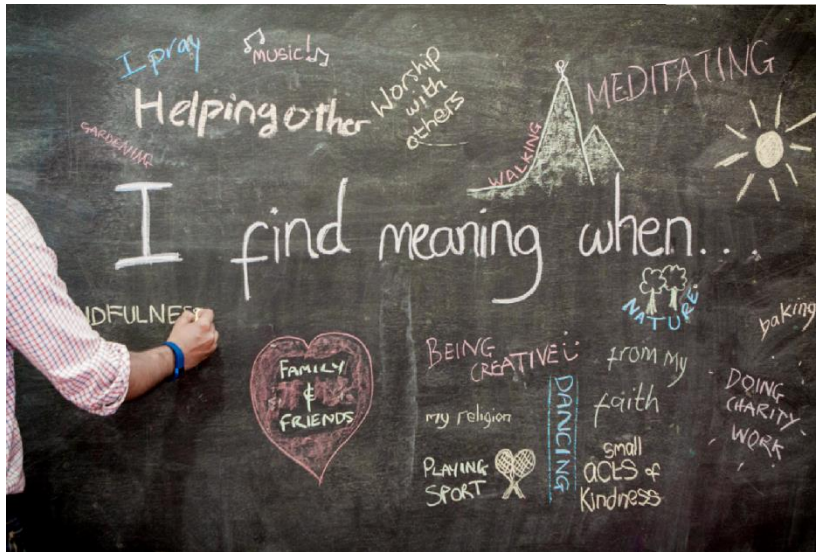 I pray
MUSIC!
Helping other
Worship
with
others
MEDITATING
WALKING
GARDENING
I find meaning when...
NDFULNESS
NATURE
baking
FAMILY
&
FRIENDS
BEING
CREATIVE
from my
faith
my religion
DANCING
DOING
CHARITY
WORK
PLAYING
SPORT
small
acts of
Kindness